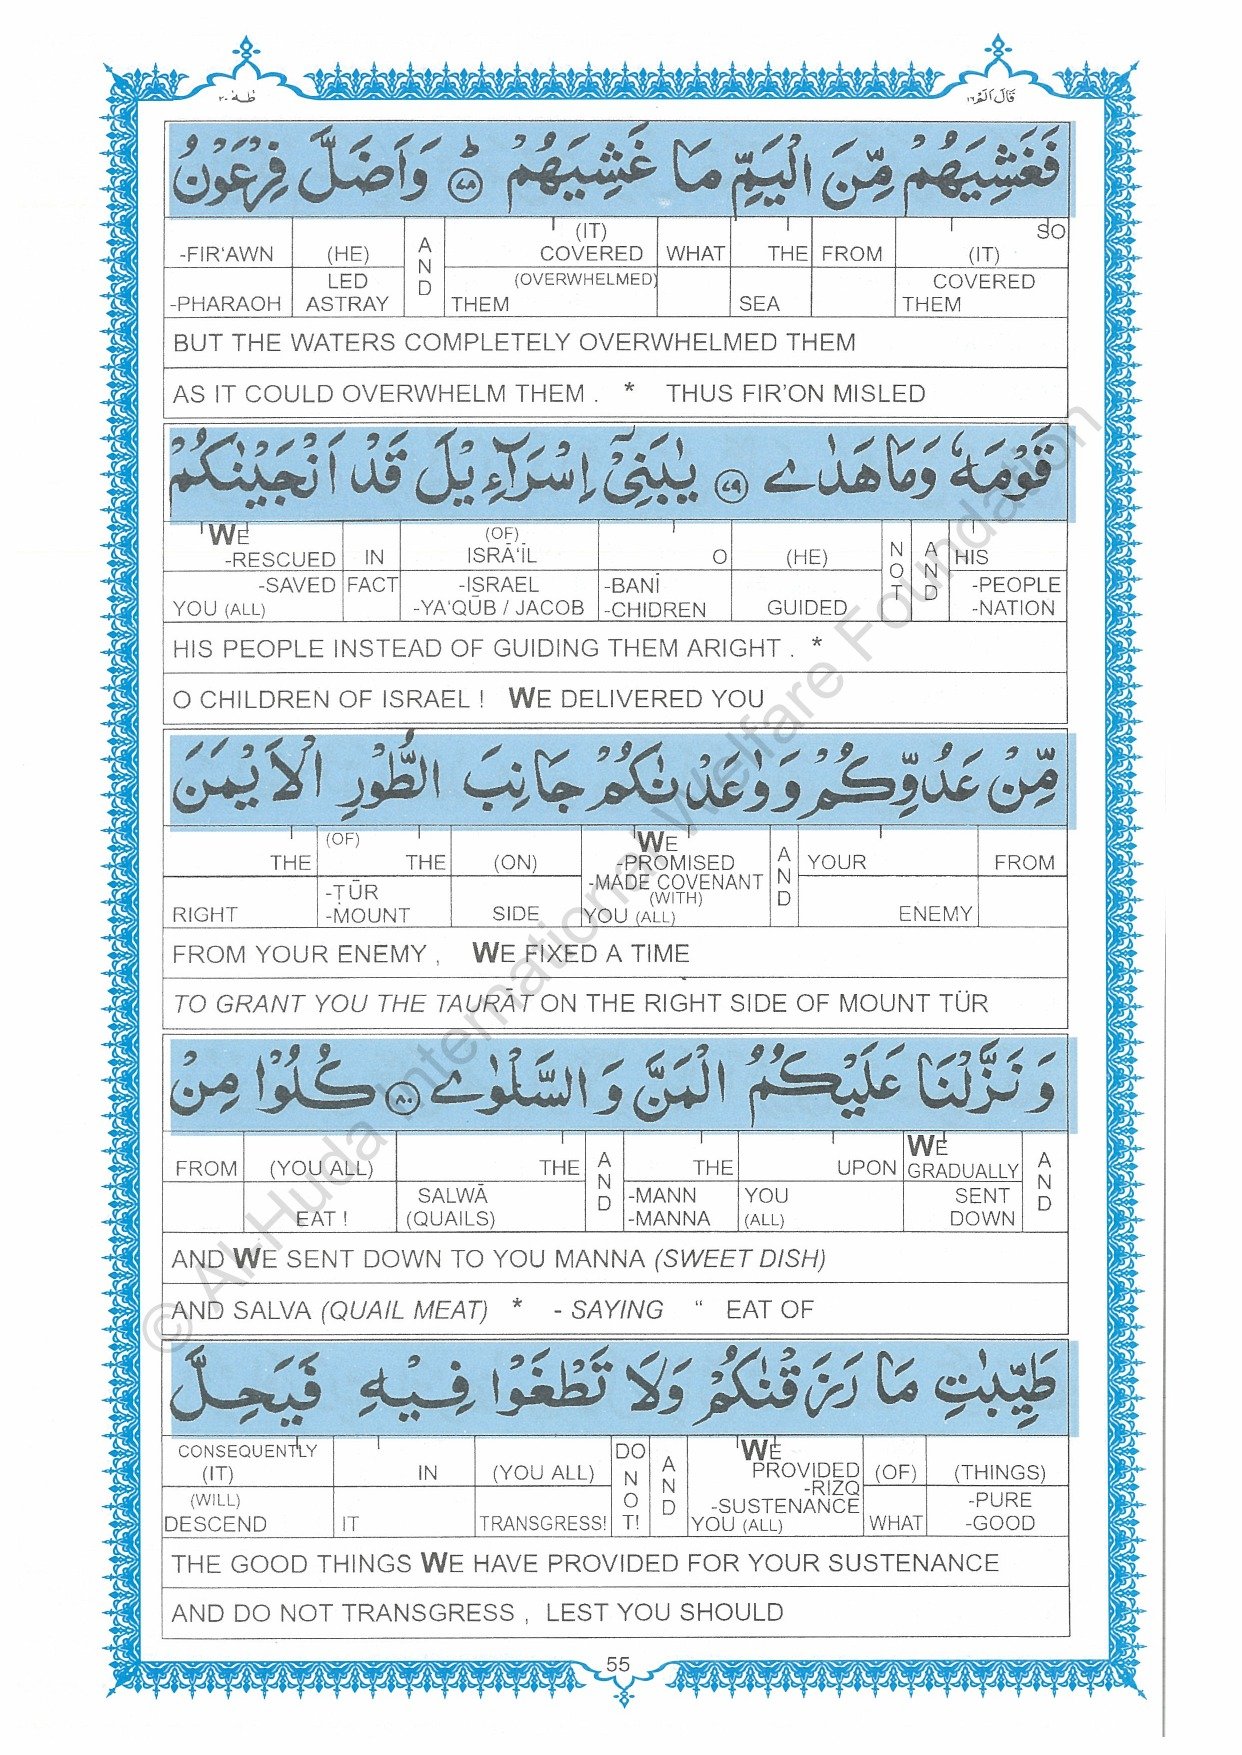 قَالَ اَلَمْ ١٦
طٰهٰ ٢٠
فَغَشِيَهُمْ مِّنَ الْيَمِّ مَا غَشِيَهُمْ ؕ ﴿۷۸﴾ وَاَضَلَّ فِرْعَوْنُ
-FIR‘AWN (HE) AND (IT) COVERED WHAT THE FROM SO (IT)
-PHARAOH LED ASTRAY (OVERWHELMED) THEM SEA COVERED THEM
BUT THE WATERS COMPLETELY OVERWHELMED THEM
AS IT COULD OVERWHELM THEM . * THUS FIR’ON MISLED
قَوْمَهٗ وَمَا هَدٰى ﴿۷۹﴾ يٰبَنِىْٓ اِسْرَآءِيْلَ قَدْ اَنْجَيْنٰكُمْ
WE -RESCUED IN (OF) ISRĀ‘ĪL O (HE) NOT AND HIS
-SAVED YOU (ALL) FACT -ISRAEL -YA‘QŪB / JACOB -BANĪ -CHIDREN GUIDED -PEOPLE -NATION
HIS PEOPLE INSTEAD OF GUIDING THEM ARIGHT . *
O CHILDREN OF ISRAEL ! WE DELIVERED YOU
مِّنْ عَدُوِّكُمْ وَوٰعَدْنٰكُمْ جَانِبَ الطُّوْرِ الْاَيْمَنَ
THE (OF) THE (ON) WE -PROMISED -MADE COVENANT AND YOUR FROM
RIGHT -ṬŪR -MOUNT SIDE (WITH) YOU (ALL) ENEMY
FROM YOUR ENEMY , WE FIXED A TIME
TO GRANT YOU THE TAURĀT ON THE RIGHT SIDE OF MOUNT TÜR
وَ نَزَّلْنَا عَلَيْكُمُ الْمَنَّ وَ السَّلْوٰى ﴿۸۰﴾ كُلُوْا مِنْ
FROM (YOU ALL) THE AND THE UPON WE GRADUALLY AND
EAT ! SALWĀ (QUAILS) -MANN -MANNA YOU (ALL) SENT DOWN
AND WE SENT DOWN TO YOU MANNA (SWEET DISH)
AND SALVA (QUAIL MEAT) * - SAYING “ EAT OF
طَيِّبٰتِ مَا رَزَقْنٰكُمْ وَلَا تَطْغَوْا فِيْهِ فَيَحِلَّ
CONSEQUENTLY (IT) IN (YOU ALL) DO NOT! AND WE PROVIDED -RIZQ (OF) (THINGS)
(WILL) DESCEND IT TRANSGRESS! -SUSTENANCE YOU (ALL) WHAT -PURE -GOOD
THE GOOD THINGS WE HAVE PROVIDED FOR YOUR SUSTENANCE
AND DO NOT TRANSGRESS , LEST YOU SHOULD
55
© Al-Huda International Welfare Foundation